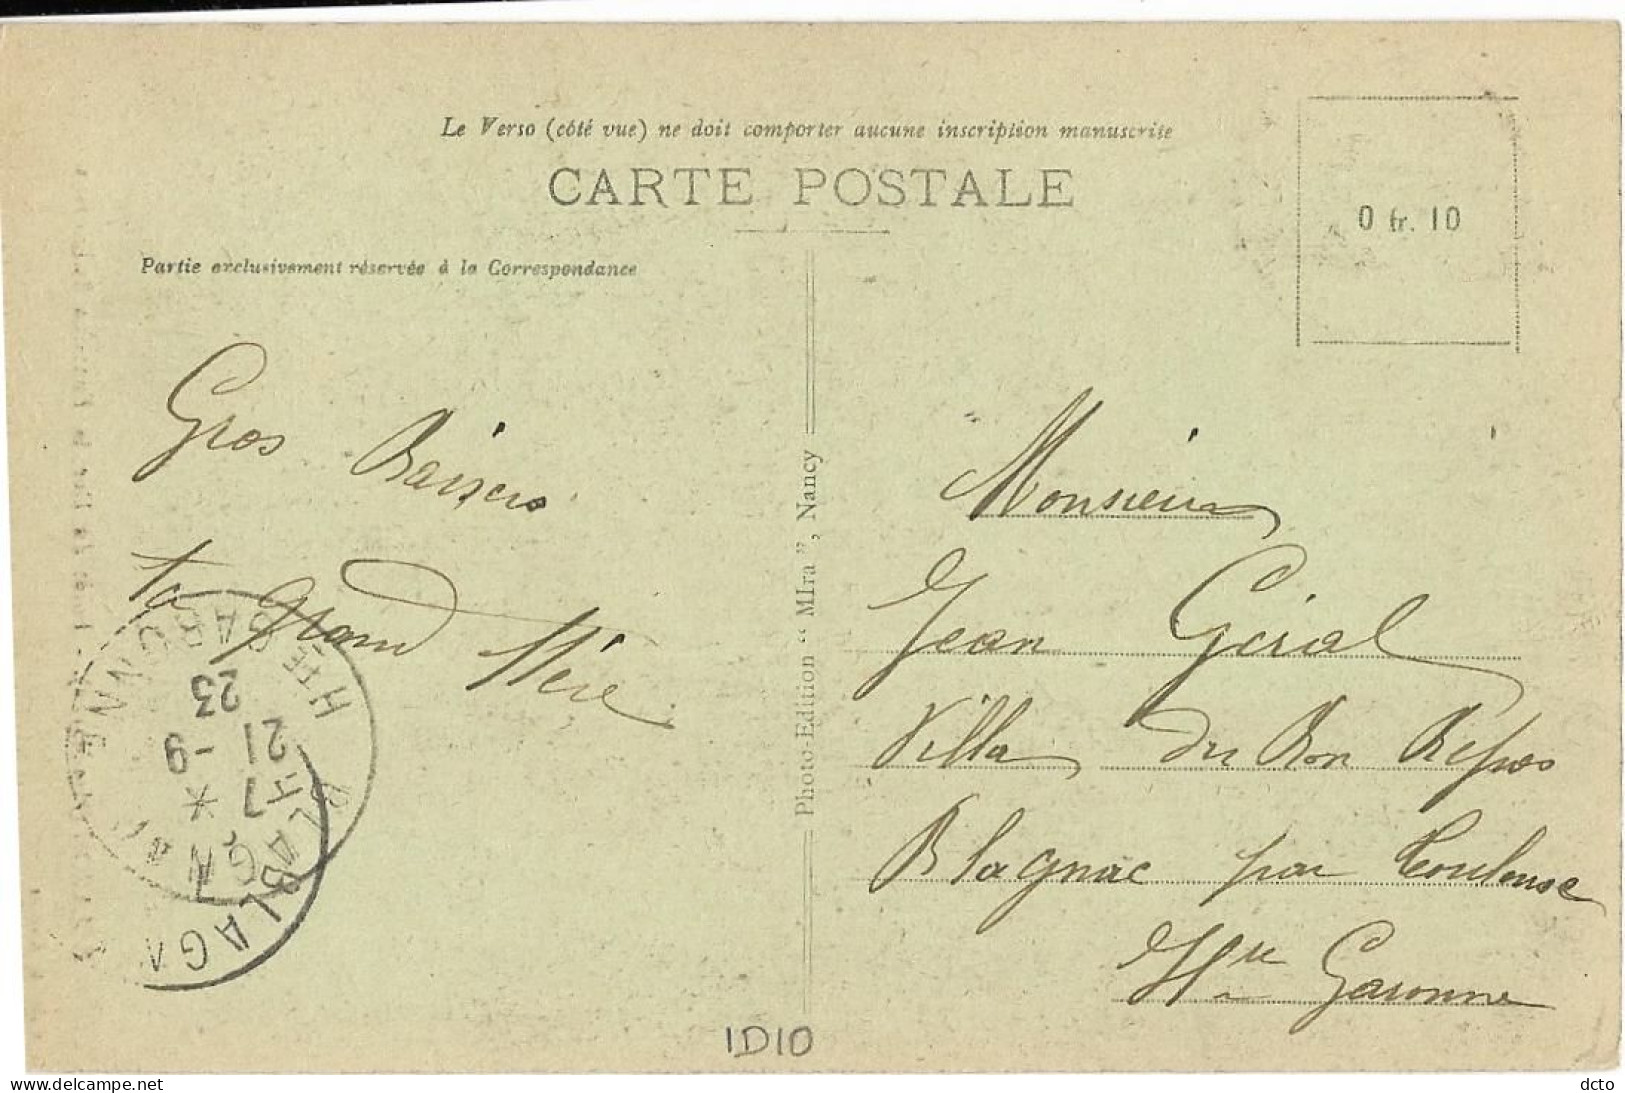 Le Verso (côté vue) ne doit comporter aucune inscription manuscrite
CARTE POSTALE
Partie exclusivement réservée à la Correspondance
0 fr. 10
Gros Baisers
ta grand Mère
Photo-Edition “ MIra ”, Nancy
Monsieur
Jean Géral
Villa du Bon Repos
Blagnac par Toulouse
Hte Garonne
BLAGNAC
HTE GARONNE
7 H
21 -9
23
BLAGN
1D10
delcampe.net
dcto